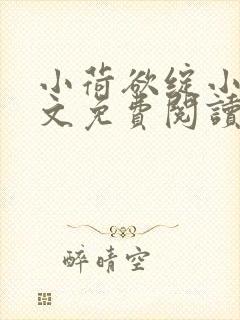 小荷欲绽小
文免費閱讀
醉晴空